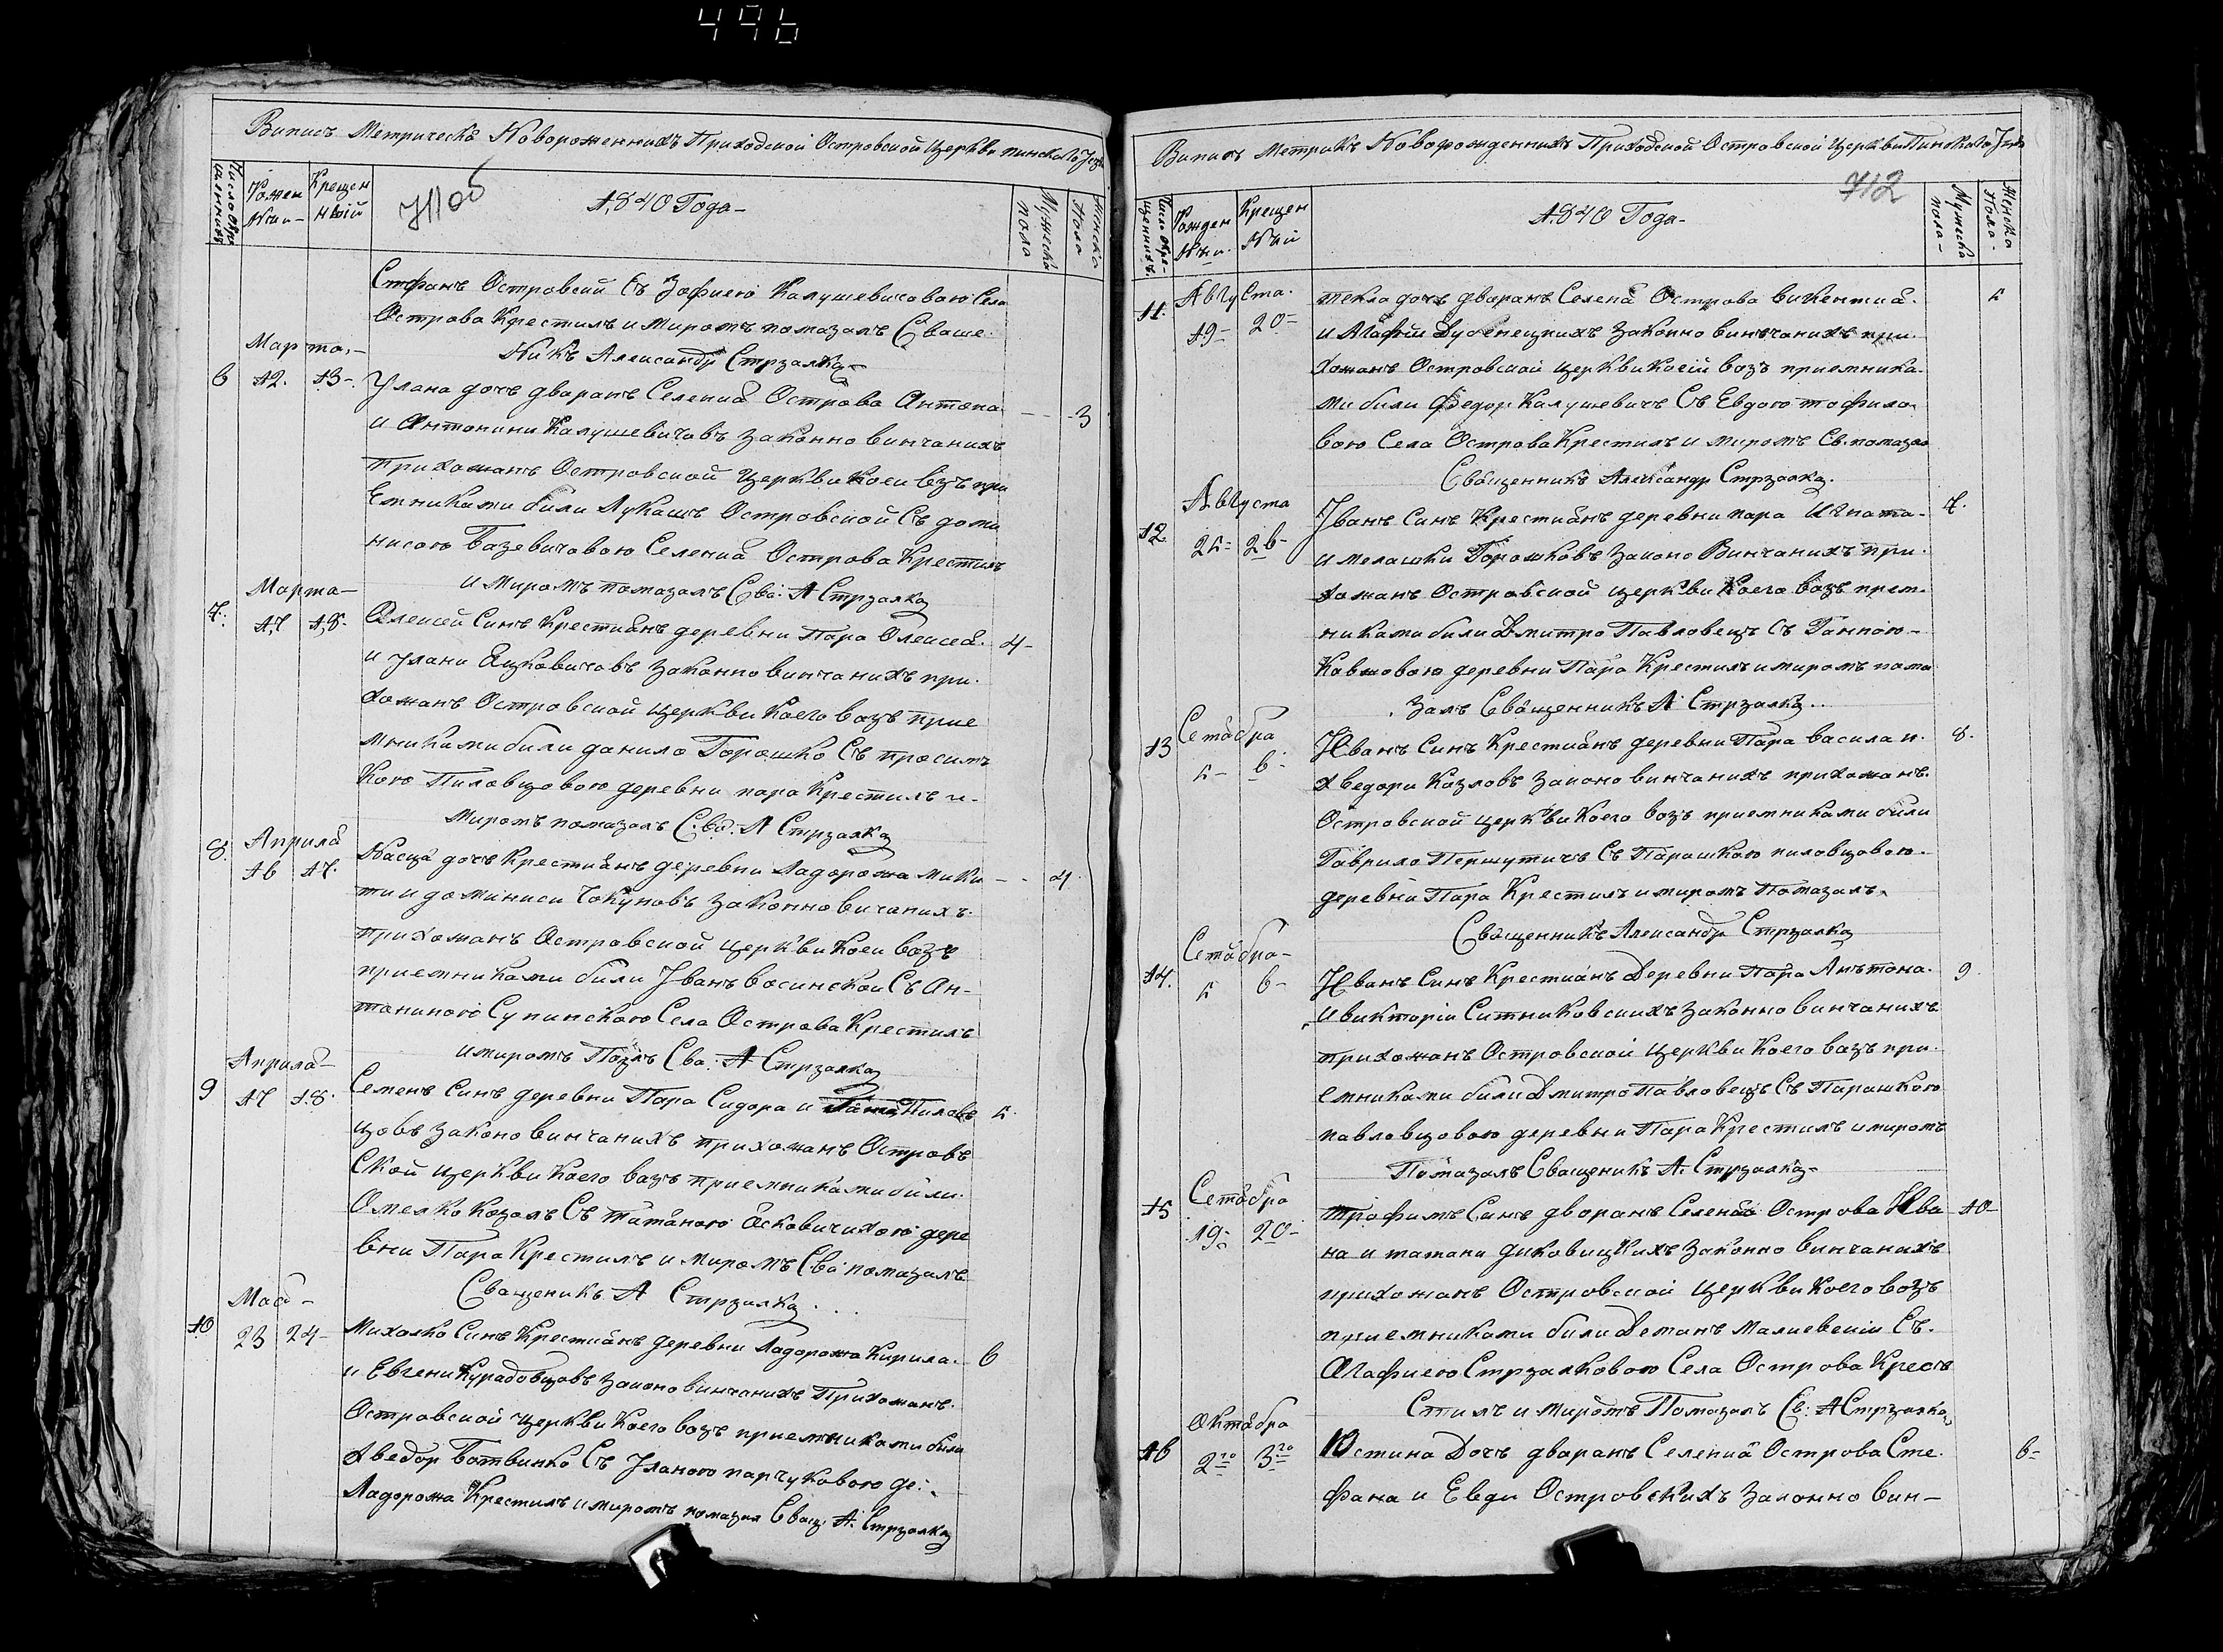 496
Випись Метрическа Новорожennихъ Приходской Островской Церкви пинскаго Уез
Число Кре щенникъ
Рожен Nии-
Крещен ный
711об
1840 Года-
Мужеска пола
Женска Пола
Стефанъ Островский Съ Зофиею Калушевичовою Села
Острова Крестилъ и миромъ помазалъ Сваще-
Никъ Александр Стрзалка
Марта.-
6 12. 13-.
Улана дочь дваранъ Селения Острова Антона 3
и Антонини Калушевичовъ законно винчанихъ
прихожанъ Островской Церкви Коеи възъ при
емниками били Лукашъ Островской Съ доми
нисою Базевичовою Селения Острова Крестилъ
и миромъ помазалъ Сва: А Стрзалка
Марта-
7. 17 18.
Олексей Синъ Крестиянъ деревни Пара Олексея. 4-
и Улани Яцковичовъ законно винчанихъ при-
хожанъ Островской церкви Коего возъ прие
мниками били данило Горошко Съ просимъ
Кою Пиловцовою деревни пара Крестилъ и-
миромъ помазалъ Сва. А Стрзалка
Априля
8. 16 17.
Насця дочъ Крестиянъ деревни Ладорожа Мики 4
ти и доминиси Чокуновъ законно вичанихъ.
прихожанъ Островской церкви Коеи возъ
приемниками били Иванъ восинской Съ Ан-
таниною Супинскою Села Острова Крестилъ
и миромъ Позлъ Сва: А Стрзалка
Априля-
9 17 18.
Семенъ Синъ деревни Пара Сидора и Пиловъ 5.
цовъ законо винчанихъ прихожанъ Островъ
Ской церкви Коего возъ приемниками били.
Омелко Козолъ Съ татяною Ясковичихою дере
вни Пара Крестилъ и миромъ Сва помазалъ
Сващеникъ А Стрзалка
Мая-
10 23 24-
Михалко Синъ Крестиянъ деревни Ладорожа Кирила- 6
и Евгени Курадовцовъ законо винчанихъ Прихожанъ.
Островской церкви Коего возъ приемниками били
Хведор Ботвинко Съ Уланою парчуковою де:
Ладорожа Крестилъ и миромъ помазал Сващ. А. Стрзалка
Випись Метрикъ Новорожденнихъ Приходской Островской Церкви Пинскаго Уезда
Число Кре- щеннихъ.
Рожден Nни.
Крещен Ный
712
1840 Года-
Мужеска пола-
Женска Пола-
Августа.
11. 19- 20-
текла дочь дваранъ Селения Острова викентия. 5
и Агафии Дубенецкихъ законно винчанихъ при-
хожанъ Островской церкви Коеій возъ приемника-
ми били Федор Калушевичъ Съ Евдою тофило-
вою Села Острова Крестилъ и миромъ Св. помазал
Сващенникъ Александр Стрзалка.
Августа
12 25- 26-
Иванъ Синъ Крестиянъ деревни пара Игната- 7.
и мелашки Горошковъ законо Винчанихъ при-
хожанъ Островской церкви Коего возъ прем-
никами били Дмитро Павловецъ Съ Ганною-
Ковжовою деревни Пара Крестилъ и миромъ пома
залъ Сващенникъ А Стрзалка..
Сетября
13 5- 6-
Иванъ Синъ Крестиянъ деревни Пара васила и. 8.
Хведори Козловъ законо винчанихъ прихожанъ.
Островской церкви Коего возъ приемниками били
Гаврило Першутичъ Съ Парашкою пиловцовою.
деревни Пара Крестилъ и миромъ Помазалъ.
Сващенникъ Александр Стрзалка
Сетября-
14. 5 6-
Иванъ Синъ Крестиянъ Деревни Пара Антона. 9.
и виктории Ситниковскихъ законно винчанихъ
прихожанъ Островской церкви Коего возъ при-
емниками били Дмитро Павловецъ Съ Парашкою
павловцовою деревни Пара Крестилъ и миромъ
Помазалъ Сващеникъ А. Стрзалка-
Сетября
15 19- 20-
трофимъ Синъ дворанъ Селения Острова Ива 10-
на и татани диковицкихъ законно винчанихъ
прихожанъ Островской церкви Коего возъ
приемниками били Деманъ Малиевский Съ.
Агафиею Стрзалковою Села Острова Крест
Стилъ и миромъ Помазалъ Св: А Стрзалка
Октября
16 2го 3го
Юстина Дочъ дваранъ Селения Острова Сте- 6-
фана и Евди Островскихъ законно вин-